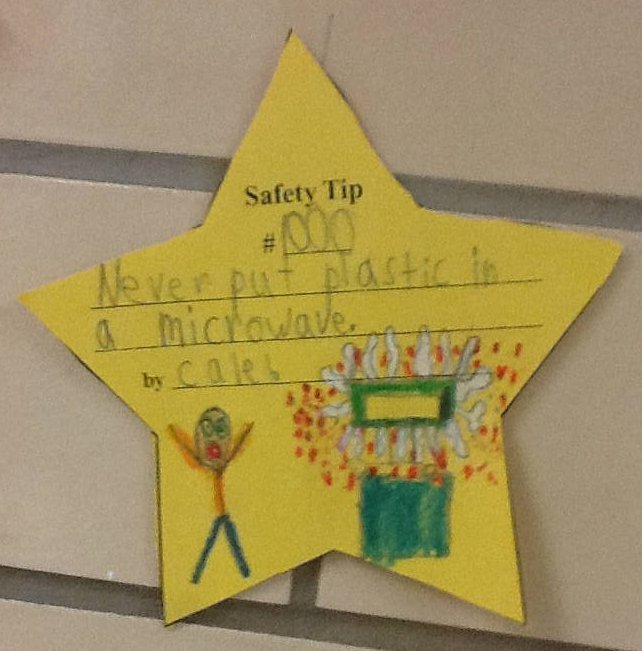 Safety Tip
# 1000
Never put plastic in
a microwave.
by caleb